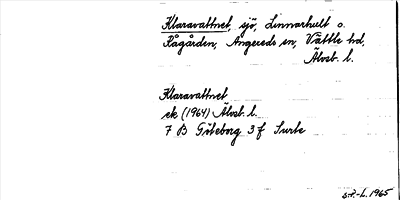 Klaravattnet, sjö, Linnarhult o.
Rågården, Angereds sn, Vättle hd,
Älvsb. l.
Klaravattnet
ek (1964) Älvsb. l.
7 B Göteborg 3 f Surte
S.P.-L. 1965